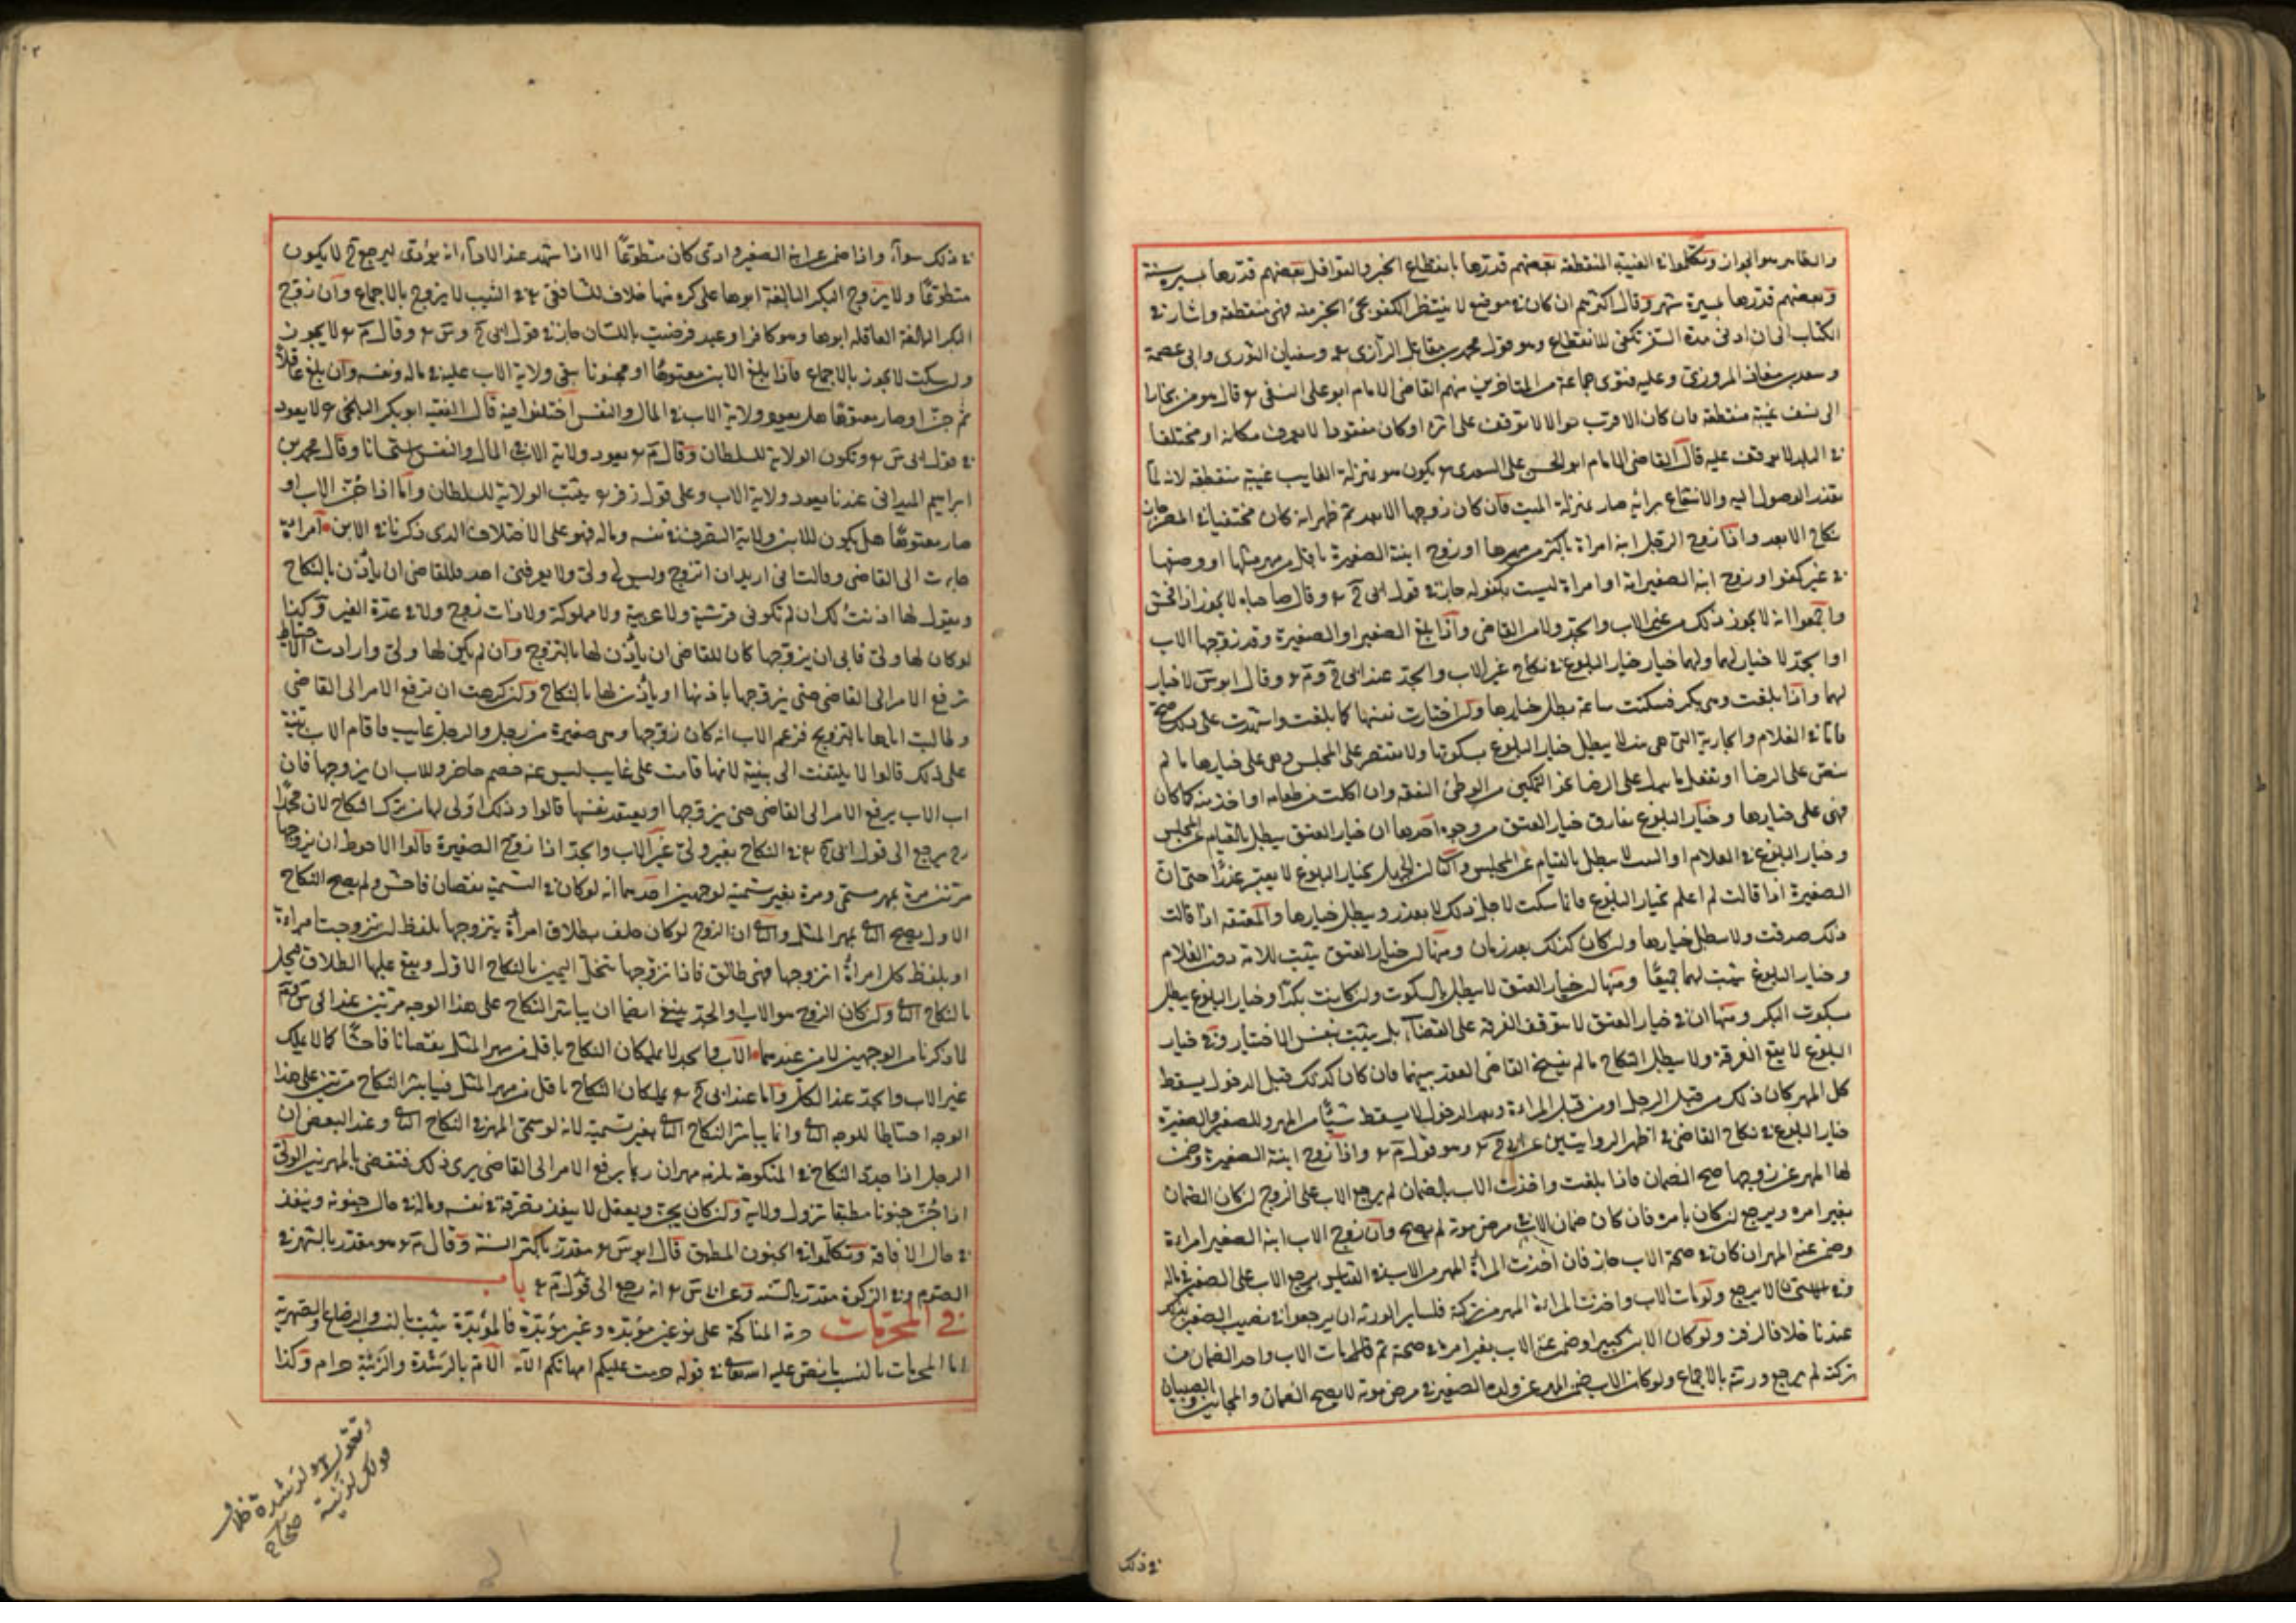 والظاهر هو الجواز وتكلموا في الغيبة المنقطعة بعضهم قدرها بانقطاع الخبر والقوافل بعضهم قدرها بمسيرة سنة
وبعضهم قدرها بمسيرة شهر وقال اكثرهم ان كان في موضع لا ينتظر الكفو مجئ الخبر منه فهي منقطعة واشار في
الكتاب الى ان ادنى مدة السفر تكفي للانقطاع وهو قول محمد بن مقاتل الرازي وسفيان الثوري وابي عصمة
وسعد بن معاذ المروزي وعليه فتوى جماعة من المتاخرين منهم القاضي الامام ابو علي النسفي قال هو من بخارا
الى نسف غيبة منقطعة فان كان الاقرب جوالا لا يوقف على اثره او كان مفقودا لا يعرف مكانه او مختلفا
في البلد لا يوقف عليه قال القاضي الامام ابو الحسن علي السعدي يكون هو بمنزلة الغايب غيبة منقطعة لانه لما
تعذر الوصول اليه والانتفاع برائه صار بمنزلة الميت فان كان زوجها الابعد ثم ظهر انه كان مختفيا في المصر جاز
نكاح الابعد واذا زوج الرجل ابنه امراة باكثر من مهرها او زوج ابنته الصغيرة باقل من مهر مثلها او وضعها
في غير كفو او زوج ابنه الصغير امة او امراة ليست بكفو له جاز في قول ابي ح وقال صاحباه لا يجوز اذا فحش
واجمعوا انه لا يجوز ذلك من غير الاب والجد ولا من القاضي واذا بلغ الصغير او الصغيرة وقد زوجها الاب
او الجد لا خيار لهما ولهما خيار البلوغ في نكاح غير الاب والجد عند ابي ح وم وقال ابو س لا خيار
لهما واذا بلغت وهي بكر فسكتت ساعة بطل خيارها ولو اختارت نفسها كما بلغت واشهدت على ذلك صح
فاما في الغلام والجارية التي هي ثيب لا يبطل خيار البلوغ بسكوتها ولا يقتصر على المجلس وهي على خيارها ما لم
تنص على الرضا او تفعل ما يدل على الرضا نحو التمكين من الوطئ النفقة وان اكلت من طعامه او اخذ منه كما كان
فهي على خيارها وخيار البلوغ يفارق خيار العتق من وجوه احدها ان خيار العتق يبطل بالقيام عن المجلس
وخيار البلوغ في الغلام او الثيب لا يبطل بالقيام عن المجلس والثاني ان الجهل بخيار البلوغ لا يعتبر عذرا حتى ان
الصغيرة اذا قالت لم اعلم بخيار البلوغ فانما سكت لاجل ذلك لا يعذر ويبطل خيارها والمعتقة اذا قالت
ذلك صدقت ولا يبطل خيارها وان كان كذلك بعد زمان ومنها ان خيار العتق يثبت للامة دون الغلام
وخيار البلوغ يثبت لهما جميعا ومنها ان خيار العتق لا يبطل بالسكوت وان كانت بكرا وخيار البلوغ يبطل
بسكوت البكر ومنها ان في خيار العتق لا تتوقف الفرقة على القضاء بل يثبت بنفس الاختيار وفي خيار
البلوغ لا يقع الفرقة ولا يبطل النكاح ما لم يفسخ القاضي العقد بينهما فان كان كذلك قبل الدخول يسقط
كل المهر كان ذلك من قبل الرجل او من قبل المراءة وبعد الدخول لا يسقط شئ من المهر وللصغير والصغيرة
خيار البلوغ في نكاح القاضي في اظهر الروايتين عن ابي ح وهو قول م واذا زوج ابنته الصغيرة وضمن
لها المهر عن زوجها صح الضمان فاذا بلغت واخذت الاب بالضمان لم يرجع الاب على الزوج ان كان الضمان
بغير امره ويرجع ان كان بامره فان كان ضمان الاب في مرض موته لم يصح وان زوج الاب ابنه الصغير امراءة
وضمن عنه المهر ان كان في صحة الاب جاز فان اخذت المراة المهر من الاب في القياس يرجع الاب على الصغير في ماله
وفي الاستحسان لا يرجع ولو مات الاب واخذت المراءة المهر من تركته فلساير الورثة ان يرجعوا في نصيب الصغير بذلك
عندنا خلافا لزفر ولو كان الابن كبيرا وضمن عنه الاب بغير امره في صحته ثم مات الاب واخذ الضمان من
تركته لم يرجع ورثته بالاجماع ولو كان الاب ضمن المهر عن ولده الصغير في مرض موته لا يصح الضمان والمجانين والصبيان
في ذلك
في ذلك سواء واذا ضمن عن ابنه الصغير وادى كان متطوعا الا اذا شهد عند الاداء انه يؤدى ليرجع ح لا يكون
متطوعا ولا يزوج البكر البالغة ابوها على كره منها خلاف للشافعي في الثيب لا يزوج بالاجماع وان زوج
البكر البالغة العاقلة ابوها وهو كافر او عبد فرضيت باللسان جاز في قول ابي ح وس وقال م لا يجوز
ولو سكت لا يجوز بالاجماع فاذا بلغ الابن معتوها او مجنونا يبقى ولاية الاب عليه في ماله ونفسه وان بلغ عاقلا
ثم جن او صار معتوها هل يعود ولاية الاب في المال والنفس اختلفوا فيه قال الفقيه ابو بكر البلخي لا يعود
في قول ابي س وتكون الولاية للسلطان وقال م يعود ولاية الاب في المال والنفس استحسانا وقال محمد بن
ابراهيم الميداني عندنا يعود ولاية الاب وعلى قول زفر يثبت الولاية للسلطان واما اذا جن الاب او
صار معتوها هل يكون للابن ولاية التصرف في نفسه وماله فهو على الاختلاف الذي ذكرنا في الابن امراة
جاءت الى القاضي وقالت اني اريد ان اتزوج وليس لي ولي ولا يعرفني احد فللقاضي ان يأذن بالنكاح
ويقول لها اذنت لك ان لم تكوني قرشية ولا عربية ولا مملوكة ولا ذات زوج ولا في عدة الغير وكذا
لو كان لها ولي فابى ان يزوجها كان للقاضي ان يأذن لها بالتزوج وان لم يكن لها ولي وارادت الاحتياط
ترفع الامر الى القاضي حتى يزوجها باذنها او يأذن لها بالنكاح ولو كرهت ان ترفع الامر الى القاضي
وطالبت اباها بالتزويج فزعم الاب انه كان زوجها وهي صغيرة من رجل والرجل غايب فاقام الاب بينة
على ذلك قالوا لا يلتفت الى بينة لانها قامت على غايب ليس عنه خصم حاضر وللاب ان يزوجها فان
ابى الاب يرفع الامر الى القاضي حتى يزوجها او يعقد نفسها قالوا وذلك اولى لها من ترك النكاح لان محمدا
رح يرجع الى قول ابي ح في النكاح بغير ولي غير الاب والجد اذا زوج الصغيرة قالوا الاحوط ان يزوجها
مرتين مرة بمهر مسمى ومرة بغير تسمية لوجهين احدهما انه لو كان في التسمية نقصان فاحش ولم يصح النكاح
الاول يصح الثاني بمهر المثل والثاني ان الزوج لو كان حلف بطلاق امراة يتزوجها بلفظ ان تزوجت امراءة
او بلفظ كل امراة اتزوجها فهي طالق فاذا تزوجها تنحل اليمين بالنكاح الاول ويقع عليها الطلاق فيحل
بالنكاح الثاني ولو كان الزوج هو الاب والجد ينبغي ايضا ان يباشر النكاح على هذا الوجه مرتين عند ابي س وم
لما ذكرنا من الوجهين لان عندهما الاب والجد لا يملكان النكاح باقل من مهر المثل بنقصانا فاحشا كما لا يملك
غير الاب والجد عند الكل واما عند ابي ح يملكان النكاح باقل من مهر المثل فيباشر النكاح مرتين على هذا
الوجه احتياطا للوجه الثاني وانما يباشر النكاح الثاني بغير تسمية لانه لو سمى المهر في النكاح الثاني وعند البعض ان
الرجل اذا جدد النكاح في المنكوحة يلزمه مهران ربما يرفع الامر الى القاضي يرى ذلك فتقضي بالمهرين الولي
اذا جن جنونا مطبقا تزول ولايته ولو كان يجن ويعقل لا ينفذ تصرفه في نفسه وماله في حال جنونه وينفذ
في حال الافاقة وتكلموا في الجنون المطبق قال ابو س مقدر باكثر السنة وقال م هو مقدر بالشهر في
الصوم وفي الزكوة مقدر بالسنة وعن ابي س انه رجع الى قول م باب
في المحرمات حرمة المناكحة على نوعين مؤبدة وغير مؤبدة فالمؤبدة يثبت بالنسب والرضاع والصهرية
اما المحرمات بالنسب ما نص عليه الله تعالى في قوله حرمت عليكم امهاتكم الآية الام بالرشدة والزنية حرام وكذا
وتقول هو لرشدة خلاف
قولك لزنية صحاح